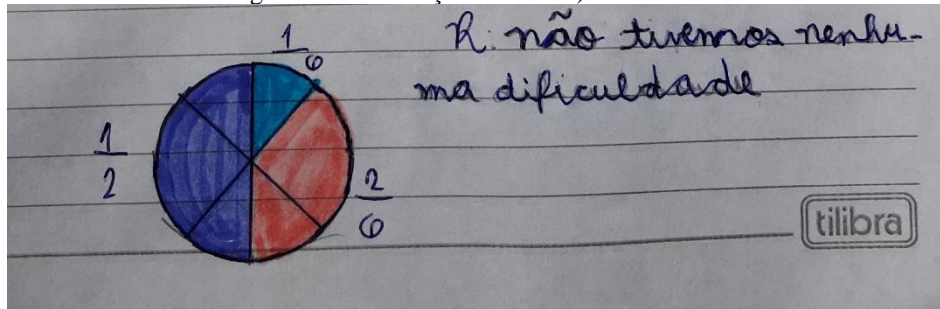 1/6
R: não tivemos nenhu-
ma dificuldade
1/2
2/6
tilibra